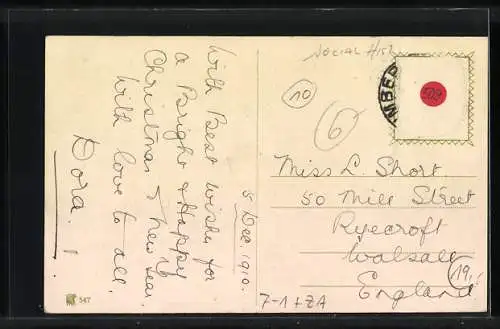 With Best wishes for
a Bright & Happy
Christmas & New Year
With love to all.
Dora.
5 Dec. 1910.
SOCIAL HIST
10
6
MBER
502
Miss L. Short.
50 Mill Street
Ryecroft
Walsall
England
19
7-1+ZA
547